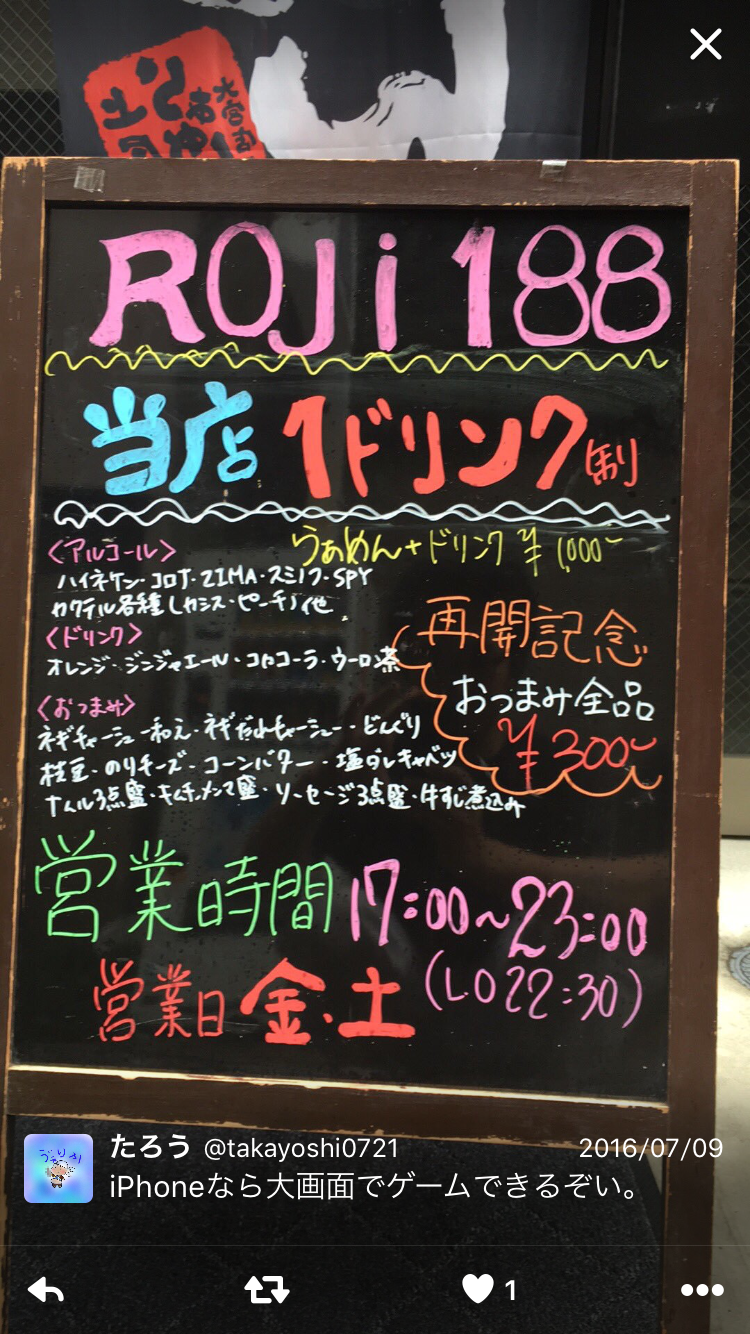 ROJi 188
当店 1ドリンク制
<アルコール>
らぁめん+ドリンク ¥1,000~
ハイネケン・コロナ・ZIMA・スミノフ・SPY
カクテル各種(カシス・ピーチ)他
<ドリンク>
オレンジ・ジンジャエール・コカコーラ・ウーロン茶
再開記念
おつまみ全品
¥300~
<おつまみ>
ネギチャーシュー和え・ネギだれチャーシュー・どんぐり
枝豆・のりチーズ・コーンバター・塩ダレキャベツ
ナムル3点盛・キムチメンマ盛・ソーセージ3点盛・牛すじ煮込み
営業時間 17:00~23:00
(LO 22:30)
営業日 金・土
たろう @takayoshi0721 2016/07/09
iPhoneなら大画面でゲームできるぞい。
1